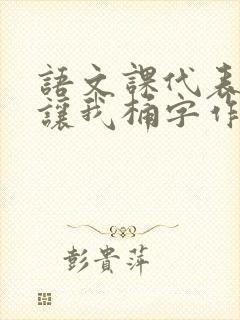 語文課代表
讓我桶字作
彭貴萍